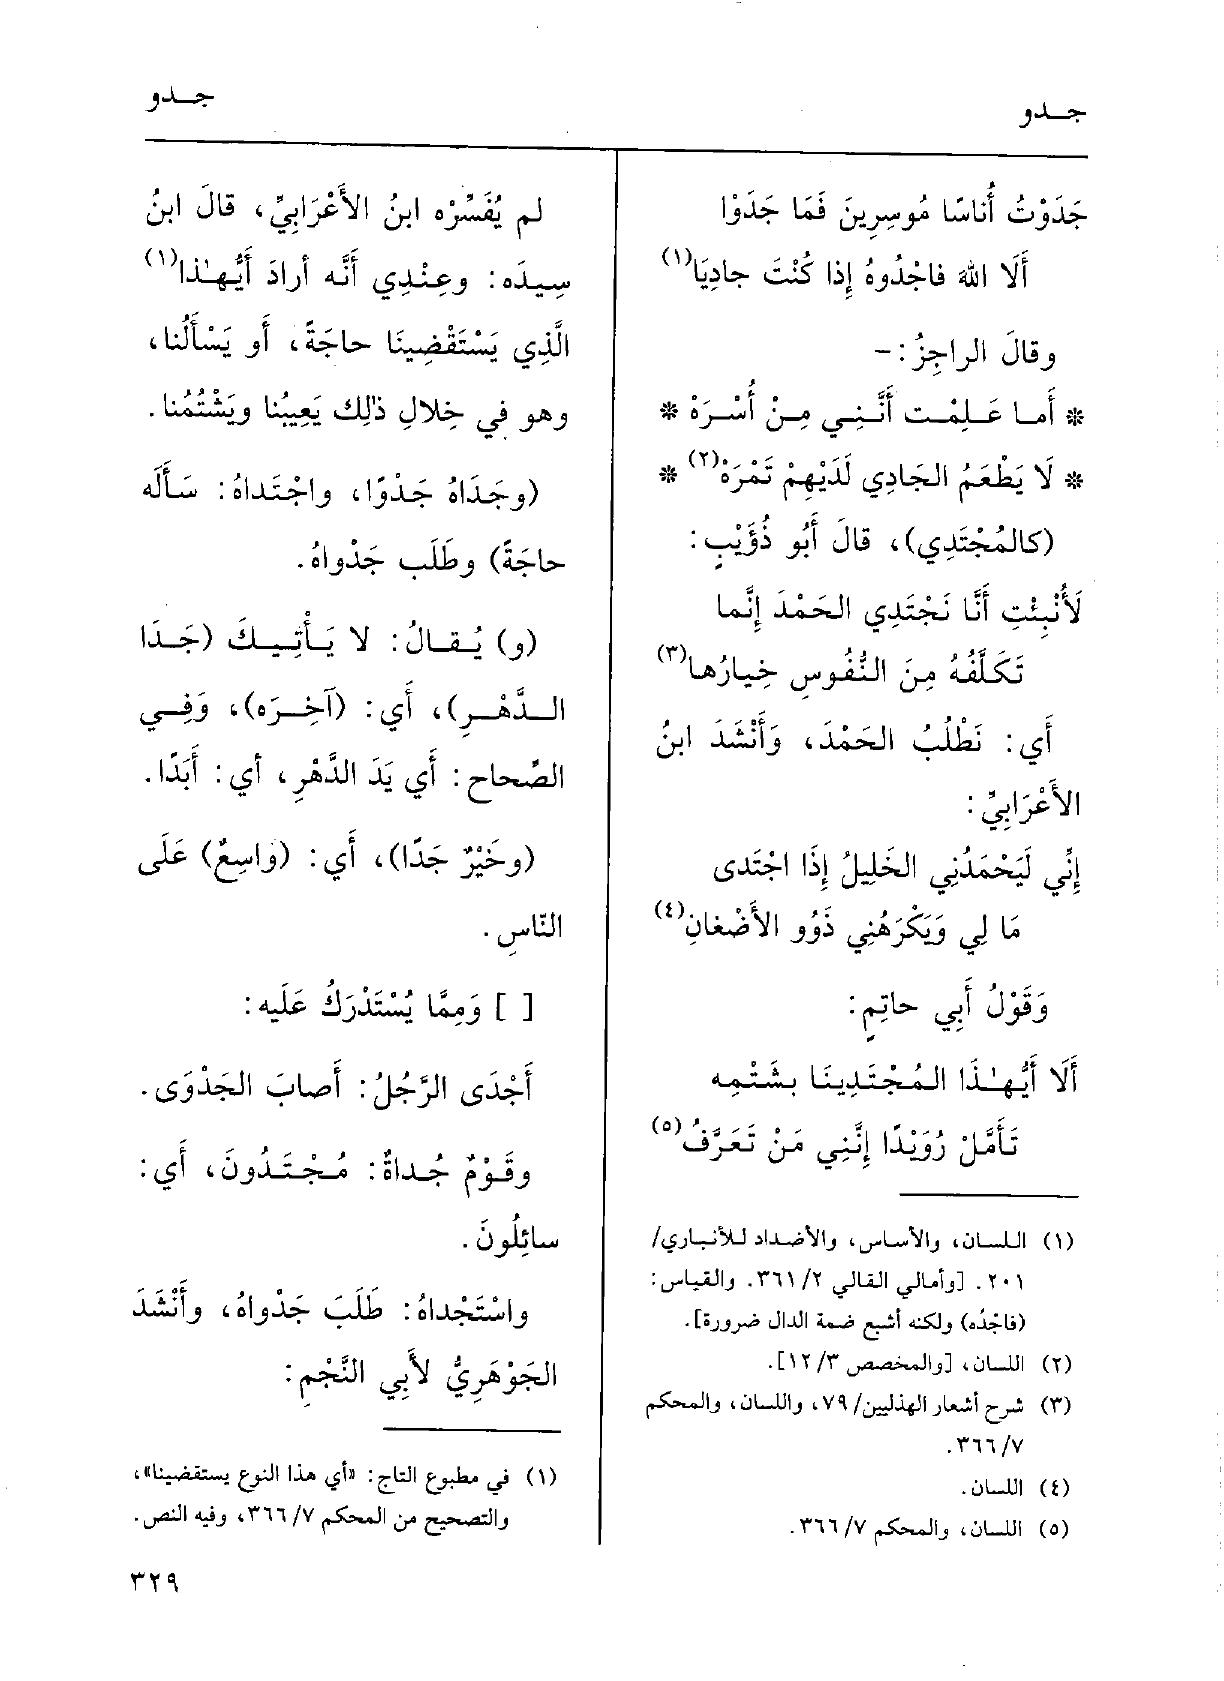 جـدو
جـدو
جَدَوْتُ أُناسًا مُوسِرِينَ فَمَا جَدَوْا
أَلَا اللهَ فاجْدُوهُ إِذا كُنْتَ جادِيَا(١)
وقالَ الراجِزُ:-
* أَما عَلِمْت أَنَّنِي مِنْ أُسْرَهْ *
* لَا يَطْعَمُ الجَادِي لَدَيْهِمْ تَمْرَهْ(٢) *
(كالمُجْتَدِي)، قالَ أَبُو ذُؤَيْبٍ:
لَأُنْبِئْتِ أَنَّا نَجْتَدِي الحَمْدَ إِنَّما
تَكَلَّفُهُ مِنَ النُّفُوسِ خِيارُها(٣)
أَي: نَطْلُبُ الحَمْدَ، وَأَنْشَدَ ابنُ
الأَعْرَابِيِّ:
إِنِّي لَيَحْمَدُنِي الخَلِيلُ إِذَا اجْتَدى
مَا لِي وَيَكْرَهُنِي ذَوُو الأَضْغانِ(٤)
وَقَوْلُ أَبِي حاتِمٍ:
أَلَا أَيُّهـٰذَا المُجْتَدِينَا بشَتْمِه
تَأَمَّلْ رُوَيْدًا إِنَّنِي مَنْ تَعَرَّفُ(٥)
(١) اللسان، والأساس، والأضداد للأنباري/
٢٠١. [وأمالي القالي ٢/ ٣٦١. والقياس:
(فاجْدُه) ولكنه أشبع ضمة الدال ضرورة].
(٢) اللسان، [والمخصص ٣/ ١٢].
(٣) شرح أشعار الهذليين/ ٧٩، واللسان، والمحكم
٧/ ٣٦٦.
(٤) اللسان.
(٥) اللسان، والمحكم ٧/ ٣٦٦.
لم يُفَسِّرْه ابنُ الأَعْرَابِيِّ، قالَ ابنُ
سِيدَه: وعِنْدِي أَنَّه أرادَ أَيُّهـٰذا(١)
الَّذِي يَسْتَقْضِينَا حاجَةً، أَو يَسْأَلُنا،
وهو في خِلالِ ذٰلِك يَعِيبُنا ويَشْتُمُنا.
(وجَدَاهُ جَدْوًا، واجْتَداهُ: سَأَلَه
حاجَةً) وطَلَب جَدْواهُ.
(و) يُقالُ: لا يَأْتِيكَ (جَدَا
الدَّهْرِ)، أَي: (آخِرَه)، وَفِي
الصِّحاح: أَي يَدَ الدَّهْرِ، أي: أَبَدًا.
(وخَيْرٌ جَدًا)، أَي: (واسِعٌ) عَلَى
النّاسِ.
[ ] وَمِمَّا يُسْتَدْرَكُ عَلَيه:
أَجْدَى الرَّجُلُ: أَصابَ الجَدْوَى.
وقَوْمٌ جُداةٌ: مُجْتَدُونَ، أَي:
سائِلُونَ.
واسْتَجْداهُ: طَلَبَ جَدْواهُ، وأَنْشَدَ
الجَوْهَرِيُّ لأَبِي النَّجْمِ:
(١) في مطبوع التاج: «أي هذا النوع يستقضينا»،
والتصحيح من المحكم ٧/ ٣٦٦، وفيه النص.
٣٢٩